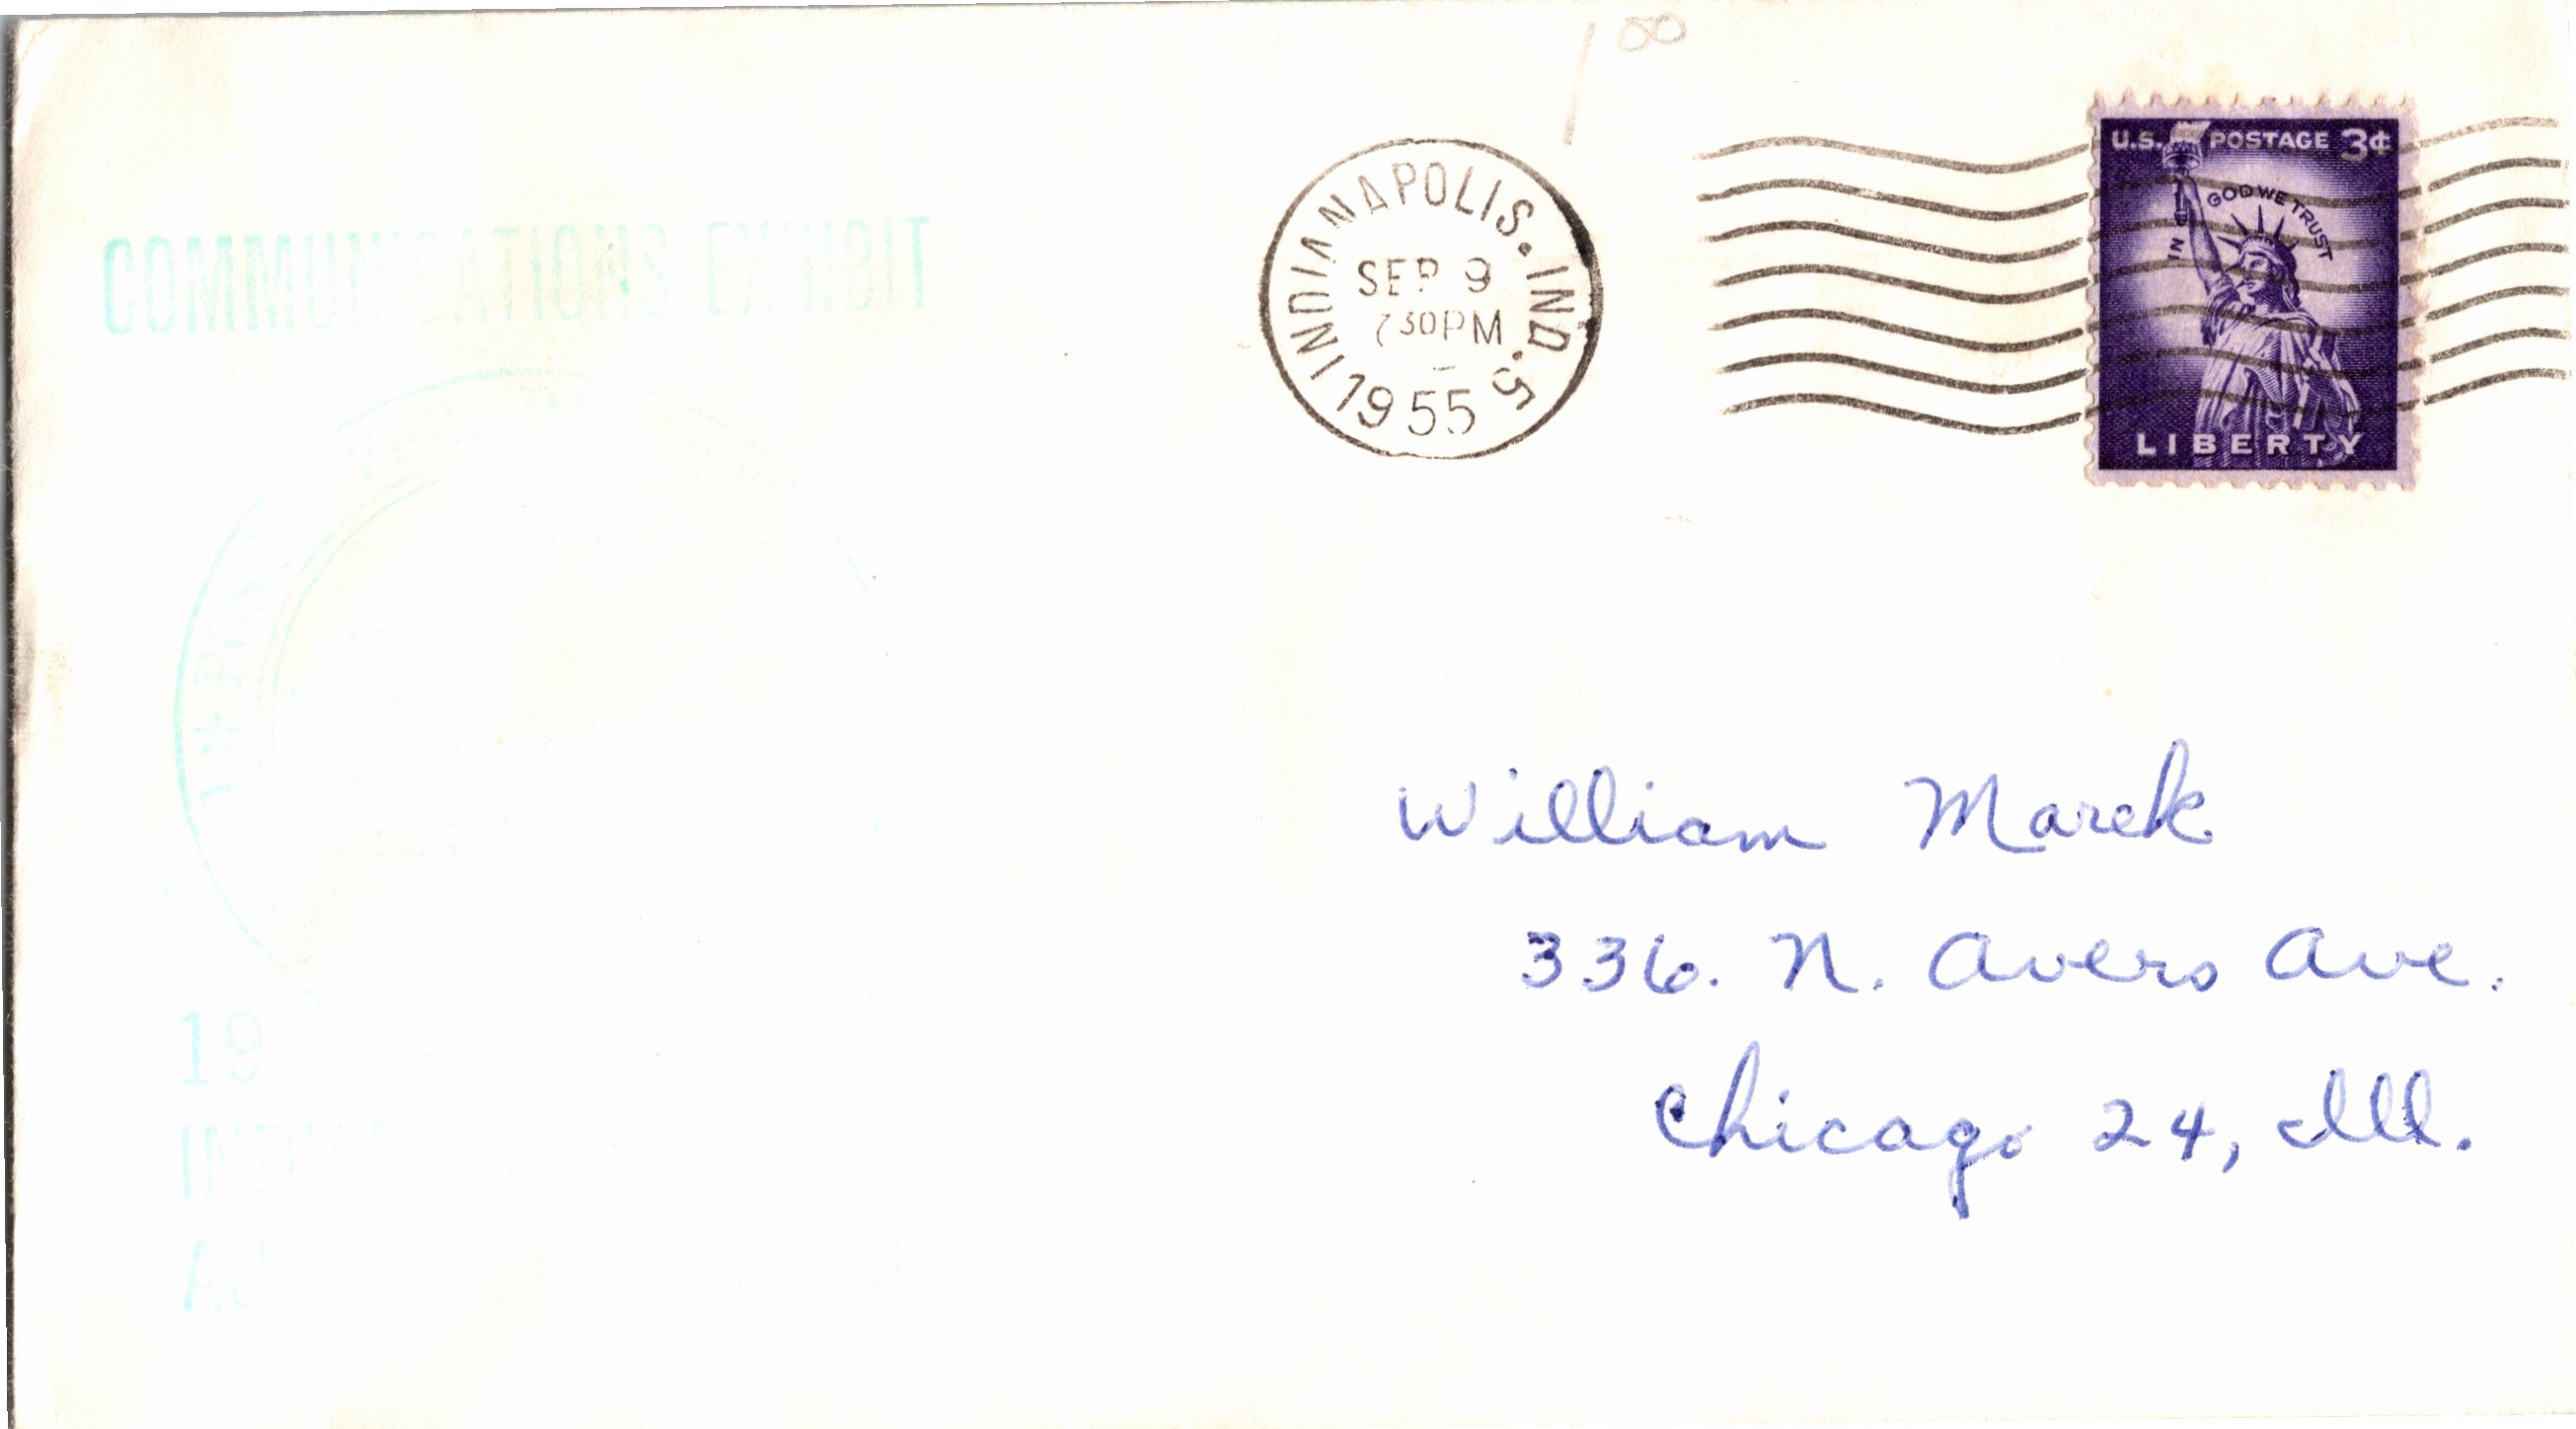 1 00
COMMUNICATIONS EXHIBIT
INDIANAPOLIS. IND. 5
SEP 9
730PM
1955
U.S. POSTAGE 3¢
IN GOD WE TRUST
LIBERTY
19
William Marek
336. N. Avers Ave.
Chicago 24, Ill.